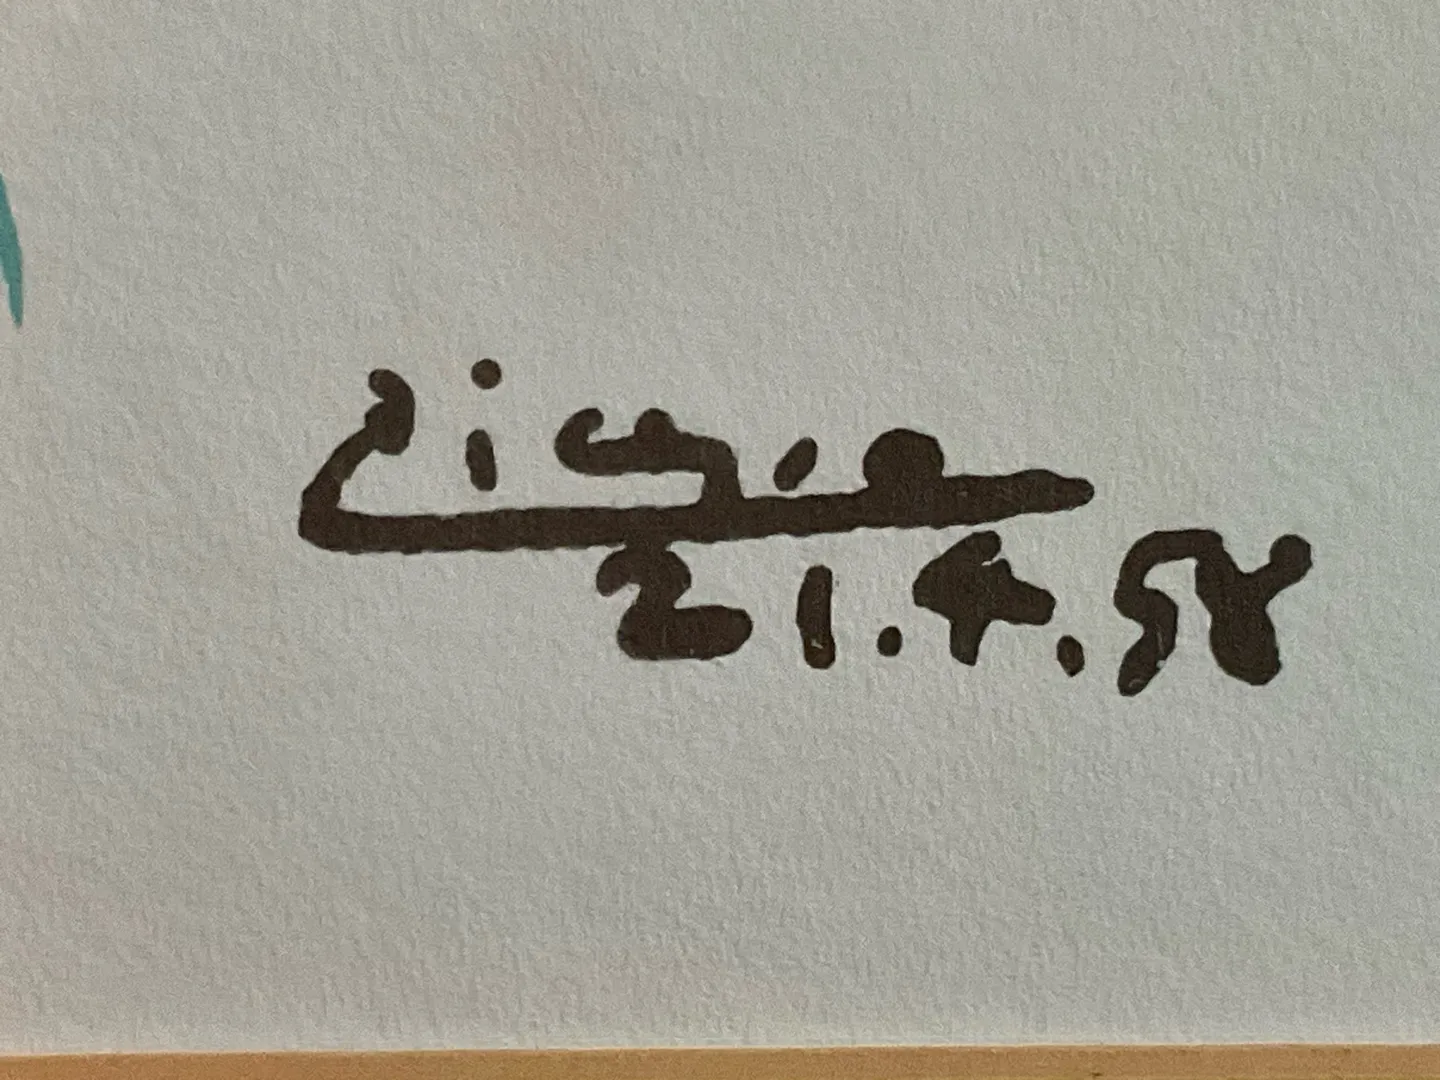 Picasso
21.4.58